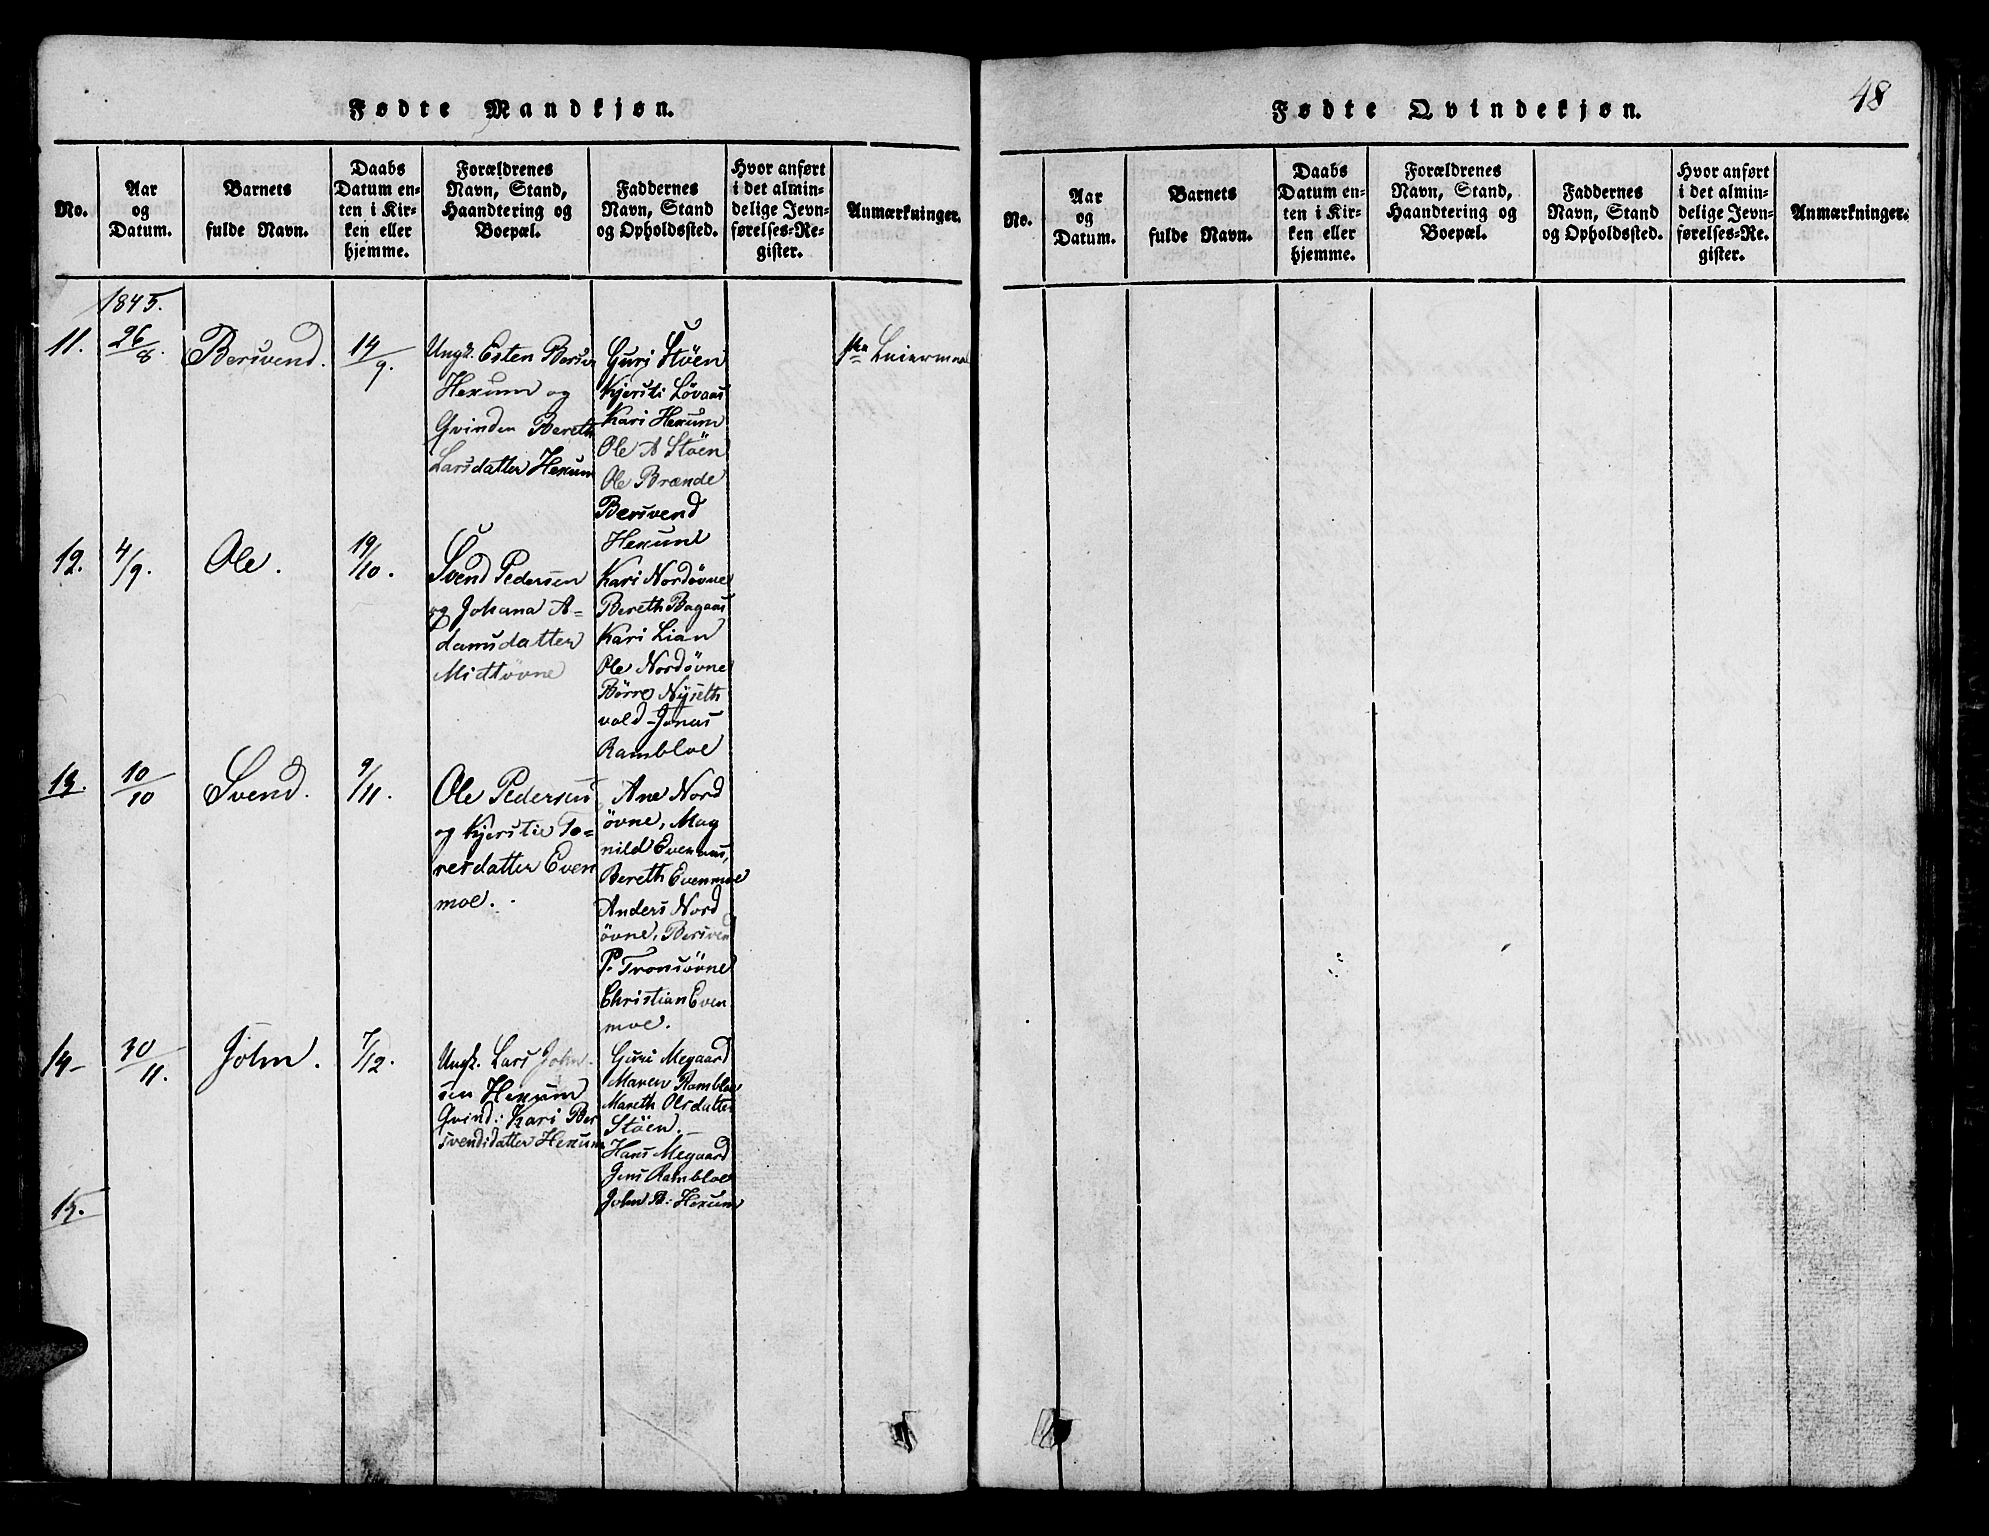 Fødte Mandkjøn.
No.
Aar
og
Datum.
Barnets
fulde Navn.
Daabs
Datum en-
ten i Kir-
ken eller
hjemme.
Forældrenes
Navn, Stand,
Haandtering og
Boepæl.
Faddernes
Navn, Stand
og Opholdssted.
Hvor anført
i det almin-
delige Jevn-
førelses-Re-
gister.
Anmærkninger.
1845.
11.
26/8.
Bersvend.
14/9.
Ungk. Esten Bersv
Hexum og
Qvinden Bereth
Larsdatter Hexum
Guri Stöen
Kjersti Lövaas
Kari Hexum
Ole A Stöen
Ole Brænde
Bersvend
Hexum
Leiermaal
12.
4/9.
Ole.
19/10.
Svend Pedersen
og Johana A-
damsdatter
Midtövne
Kari Nordövne
Bereth Bagaas
Kari Lian
Ole Nordövne
Börre Nyseth
vold - Jonas
Rambloe
13.
10/10
Svend.
9/11.
Ole Pedersen
og Kjerstie To-
resdatter Even
moe.
Ane Nord
övne, Mag
nild Evenaas,
Bereth Evenmoe
Anders Nord
övne, Bersvend
P. Tronsövne
Christian Even
moe.
14-
30/11.
John.
7/12.
Ungk. Lars John-
sen Hexum
Qvind: Kari Ber
svendsdatter Hexum
Guri Megaard
Maren Rambloe
Mareth Olsdatter
Stöen.-
Hans Megaard
Jens Rambloe
John B: Hexum
15.
48
Fødte Qvindekjøn.
No.
Aar
og
Datum.
Barnets
fulde Navn.
Daabs
Datum en-
ten i Kir-
ken eller
hjemme.
Forældrenes
Navn, Stand,
Haandtering og
Boepæl.
Faddernes
Navn, Stand
og Opholdssted.
Hvor anført
i det almin-
delige Jevn-
førelses-Re-
gister.
Anmærkninger.